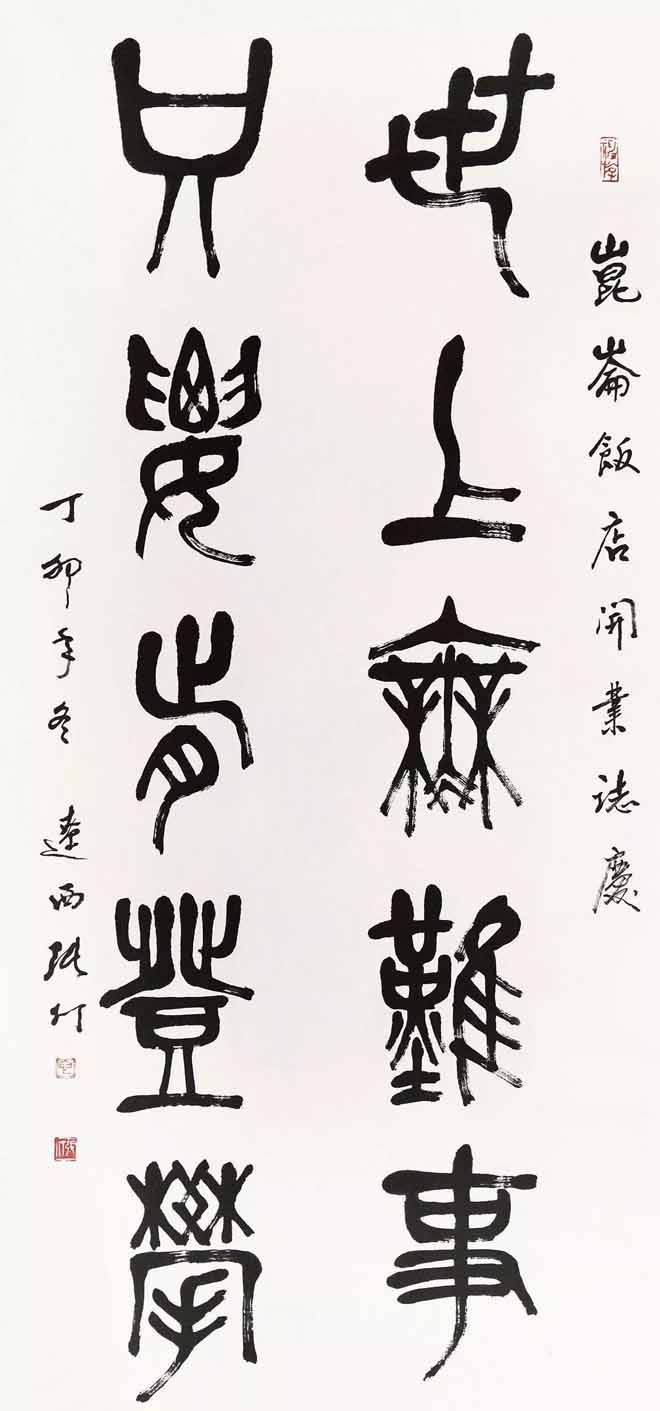 崑崙飯店開業誌慶
世上無難事
只要肯登攀
丁卯年冬 遼西張仃